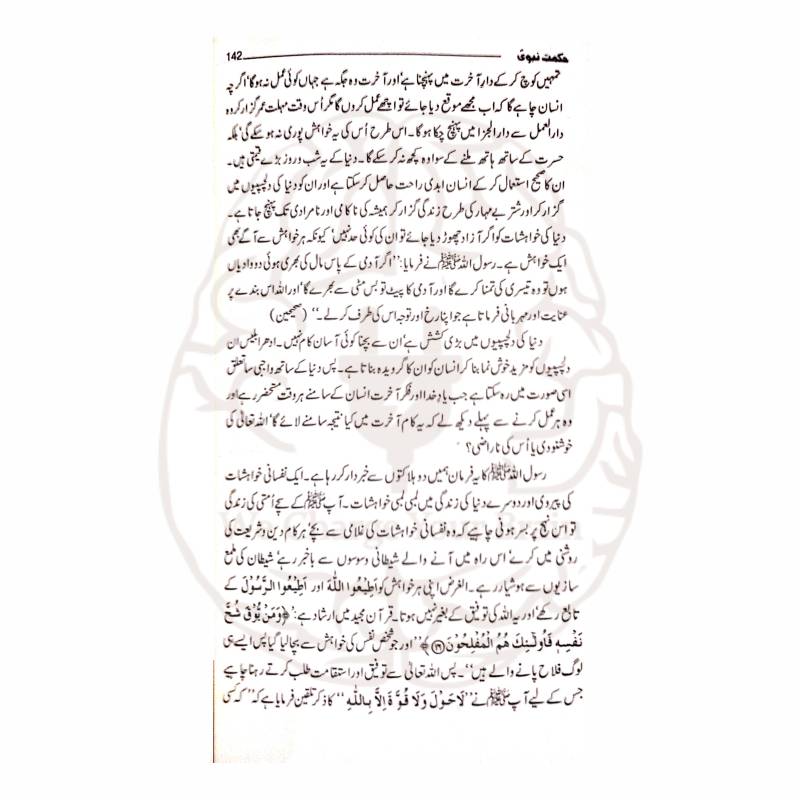 حکمت نبویؐ 142
تمہیں کوچ کر کے دارِ آخرت میں پہنچنا ہے‘ اور آخرت وہ جگہ ہے جہاں کوئی عمل نہ ہوگا‘ اگرچہ
انسان چاہے گا کہ اب مجھے موقع دیا جائے تو اچھے عمل کروں گا مگر اُس وقت مہلت عمر گزار کر وہ
دارالعمل سے دارالجزا میں پہنچ چکا ہوگا۔ اس طرح اُس کی یہ خواہش پوری نہ ہو سکے گی‘ بلکہ
حسرت کے ساتھ ہاتھ ملنے کے سوا وہ کچھ نہ کر سکے گا۔ دنیا کے یہ شب و روز بڑے قیمتی ہیں۔
ان کا صحیح استعمال کر کے انسان ابدی راحت حاصل کر سکتا ہے اور ان کو دنیا کی دلچسپیوں میں
گزار کر اور شتر بے مہار کی طرح زندگی گزار کر ہمیشہ کی ناکامی اور نامرادی تک پہنچ جاتا ہے۔
دنیا کی خواہشات کو اگر آزاد چھوڑ دیا جائے تو ان کی کوئی حد نہیں‘ کیونکہ ہر خواہش سے آگے بھی
ایک خواہش ہے۔ رسول اللہ ﷺ نے فرمایا: ’’اگر آدمی کے پاس مال کی بھری ہوئی دو وادیاں
ہوں تو وہ تیسری کی تمنا کرے گا اور آدمی کا پیٹ تو بس مٹی سے بھرے گا‘ اور اللہ اس بندے پر
عنایت اور مہربانی فرماتا ہے جو اپنا رخ اور توجہ اس کی طرف کر لے۔‘‘ (صحیحین)
دنیا کی دلچسپیوں میں بڑی کشش ہے‘ ان سے بچنا کوئی آسان کام نہیں۔ ادھر ابلیس ان
دلچسپیوں کو مزید خوش نما بنا کر انسان کو ان کا گرویدہ بناتا ہے۔ پس دنیا کے ساتھ واجبی سا تعلق
اسی صورت میں رہ سکتا ہے جب یادِ خدا اور فکرِ آخرت انسان کے سامنے ہر وقت مستحضر رہے اور
وہ ہر عمل کرنے سے پہلے دیکھ لے کہ یہ کام آخرت میں کیا نتیجہ سامنے لائے گا‘ اللہ تعالیٰ کی
خوشنودی یا اُس کی ناراضی؟
رسول اللہ ﷺ کا یہ فرمان ہمیں دو ہلاکتوں سے خبردار کر رہا ہے۔ ایک نفسانی خواہشات
کی پیروی اور دوسرے دنیا کی زندگی میں لمبی لمبی خواہشات۔ آپ ﷺ کے سچے اُمتی کی زندگی
تو اس نہج پر بسر ہونی چاہیے کہ وہ نفسانی خواہشات کی غلامی سے بچے‘ ہر کام دین و شریعت کی
روشنی میں کرے‘ اس راہ میں آنے والے شیطانی وسوسوں سے باخبر رہے‘ شیطان کی ملمع
سازیوں سے ہوشیار رہے۔ الغرض اپنی ہر خواہش کو اَطِیْعُوا اللّٰہَ اور اَطِیْعُوا الرَّسُوْلَ کے
تابع رکھے‘ اور یہ اللہ کی توفیق کے بغیر نہیں ہوتا۔ قرآن مجید میں ارشاد ہے: ﴿وَمَنْ یُّوْقَ شُحَّ
نَفْسِہٖ فَاُولٰٓئِکَ ھُمُ الْمُفْلِحُوْنَ﴾ ’’اور جو شخص نفس کی خواہش سے بچا لیا گیا پس ایسے ہی
لوگ فلاح پانے والے ہیں‘‘۔ پس اللہ تعالیٰ سے توفیق اور استقامت طلب کرتے رہنا چاہیے
جس کے لیے آپ ﷺ نے ’’لَاحَوْلَ وَلَا قُوَّۃَ اِلاَّ بِاللّٰہِ‘‘ کا ذکر تلقین فرمایا ہے کہ ’’کسی